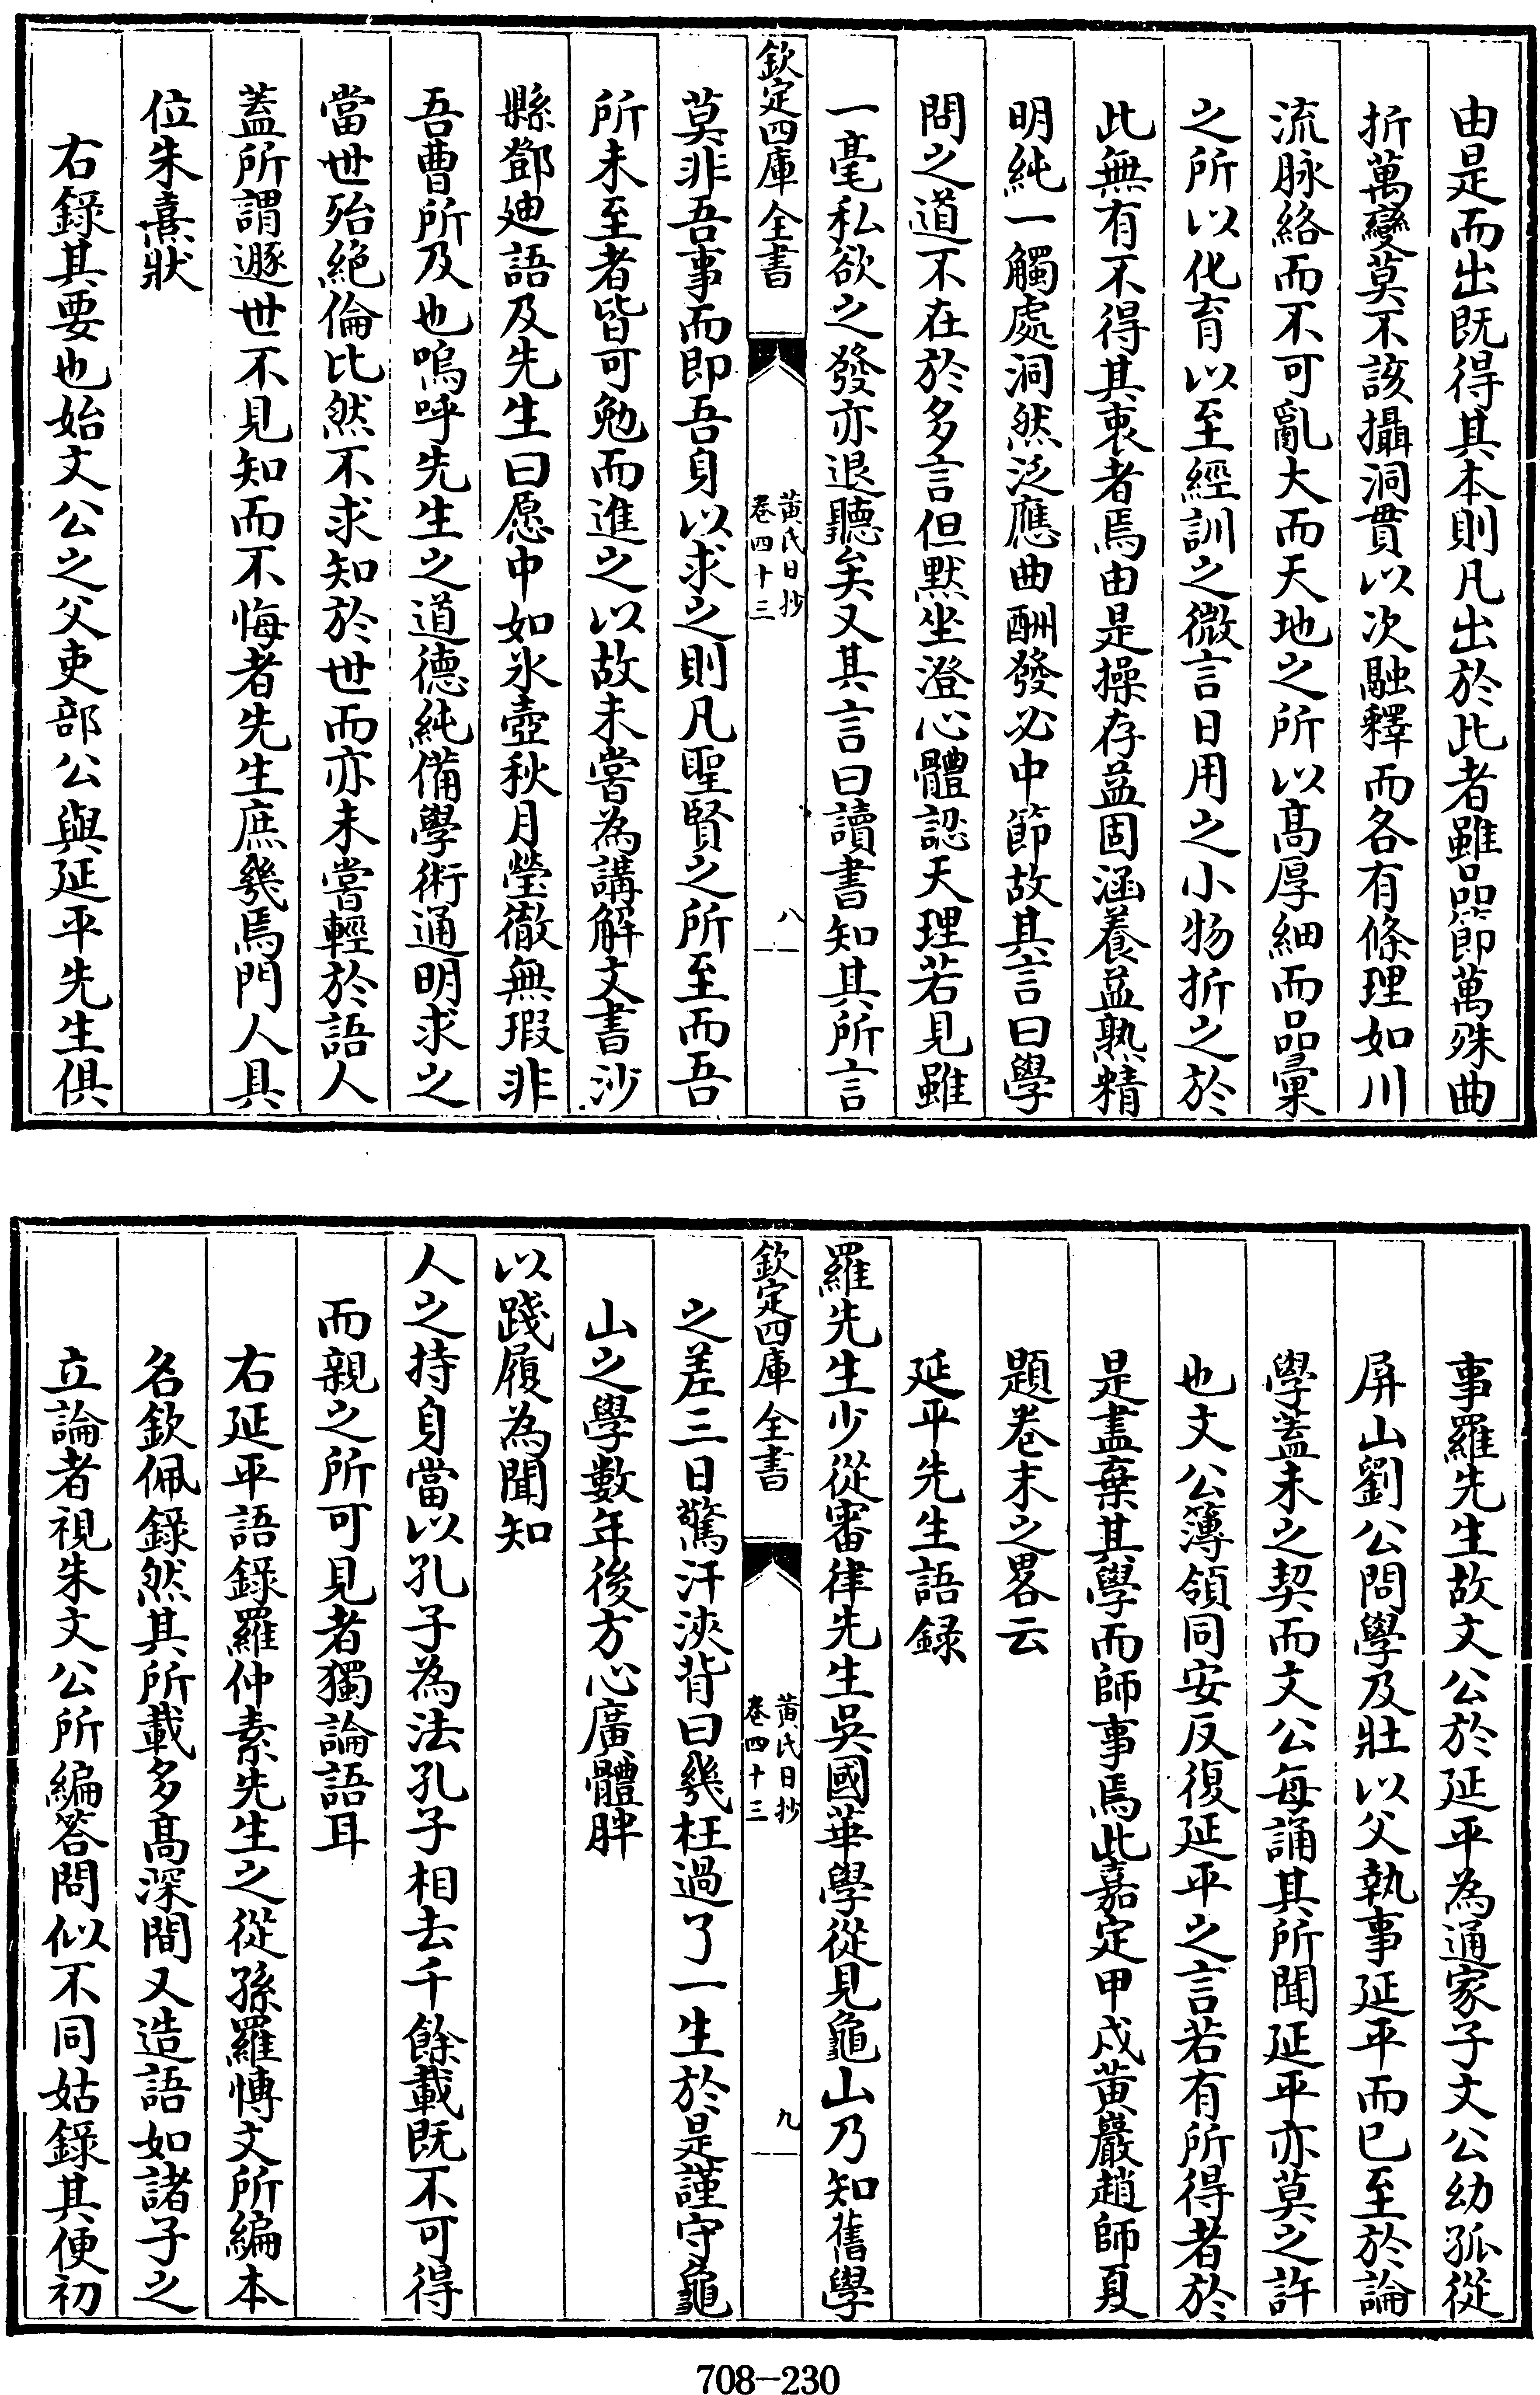 由是而出既得其本則凡出於此者雖品節萬殊曲
折萬變莫不該攝洞貫以次融釋而各有條理如川
流脉絡而不可亂大而天地之所以髙厚細而品彙
之所以化育以至經訓之微言日用之小物折之於
此無有不得其衷者焉由是操存益固涵養益熟精
明純一觸處洞然泛應曲酬發必中節故其言曰學
問之道不在於多言但默坐澄心體認天理若見雖
一毫私欲之發亦退聽矣又其言曰讀書知其所言
欽定四庫全書
黄氏日抄
卷四十三
八
莫非吾事而即吾身以求之則凡聖賢之所至而吾
所未至者皆可勉而進之以故未嘗為講解文書沙
縣鄧廸語及先生曰愿中如氷壺秋月瑩徹無瑕非
吾曹所及也嗚呼先生之道德純備學術通明求之
當世殆絶倫比然不求知於世而亦未嘗輕於語人
蓋所謂遯世不見知而不悔者先生庶幾焉門人具
位朱熹狀
右録其要也始文公之父吏部公與延平先生俱
事羅先生故文公於延平為通家子文公幼孤從
屏山劉公問學及壯以父執事延平而已至於論
學蓋未之契而文公每誦其所聞延平亦莫之許
也文公簿領同安反復延平之言若有所得者於
是盡棄其學而師事焉此嘉定甲戌黄巖趙師夏
題卷末之畧云
延平先生語録
羅先生少從審律先生吳國華學從見龜山乃知舊學
欽定四庫全書
黄氏日抄
卷四十三
九
之差三日驚汗浹背曰幾枉過了一生於是謹守龜
山之學數年後方心廣體胖
以踐履為聞知
人之持身當以孔子為法孔子相去千餘載既不可得
而親之所可見者獨論語耳
右延平語録羅仲素先生之從孫羅愽文所編本
名欽佩録然其所載多髙深間又造語如諸子之
立論者視朱文公所編答問似不同姑録其便初
708-230